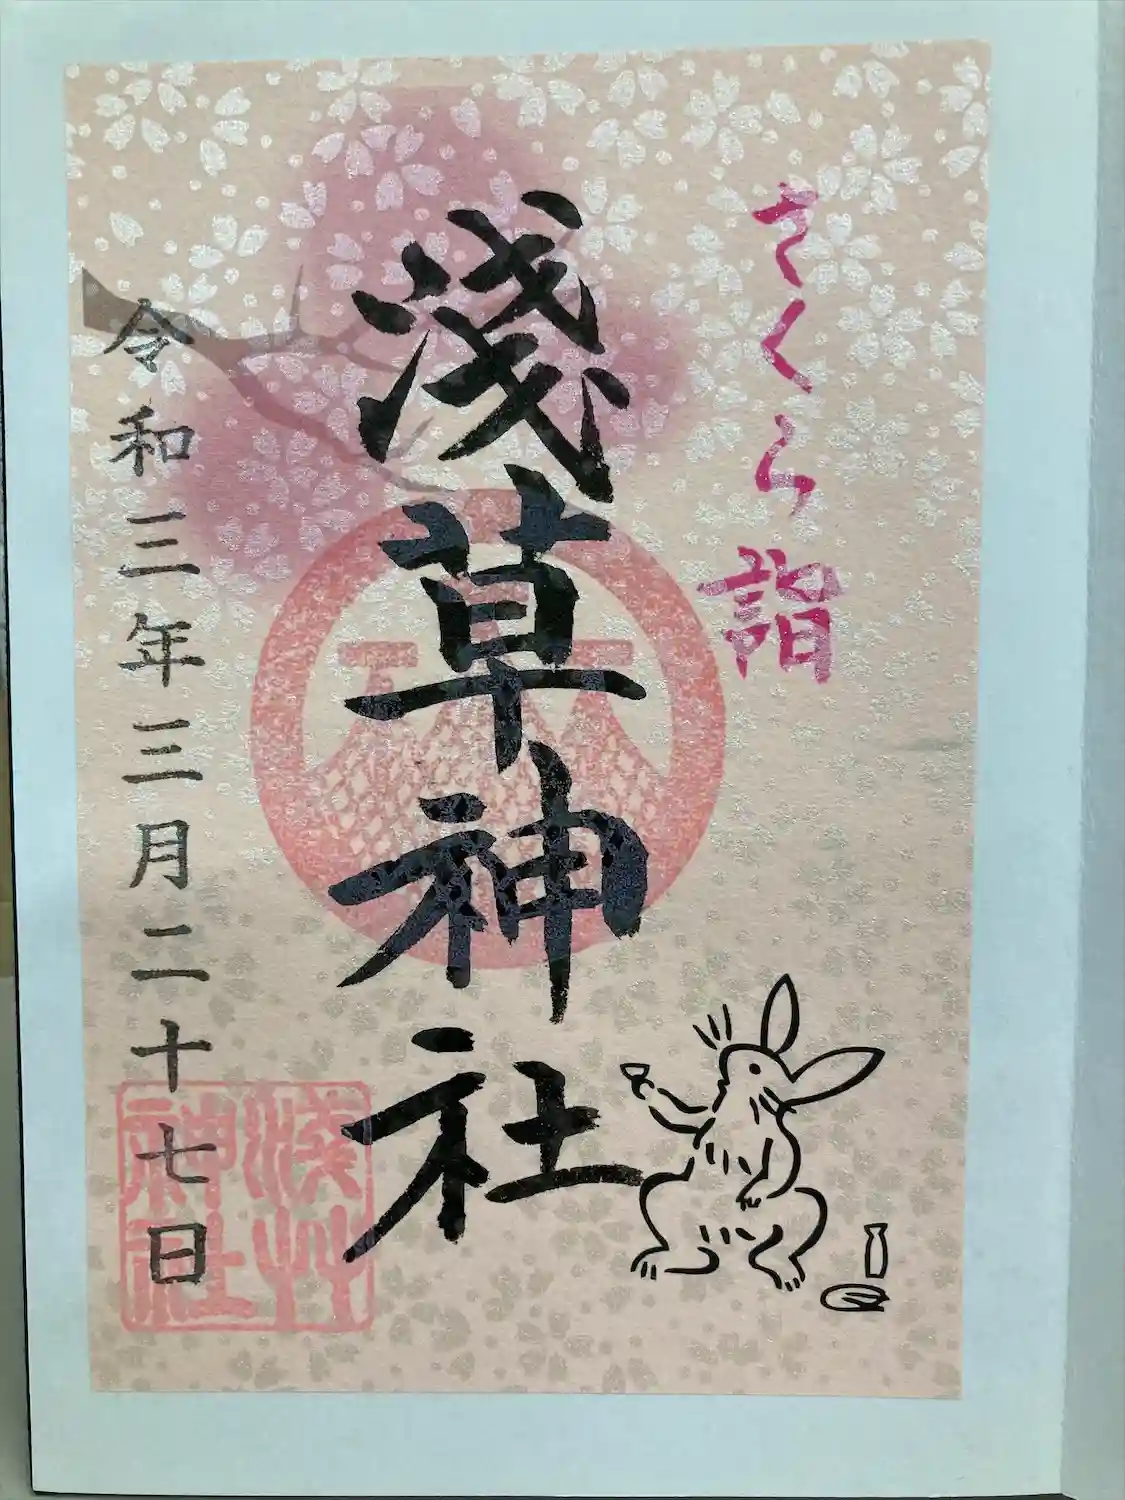 さくら詣
浅草神社
令和三年三月二十七日
淺艸
神社